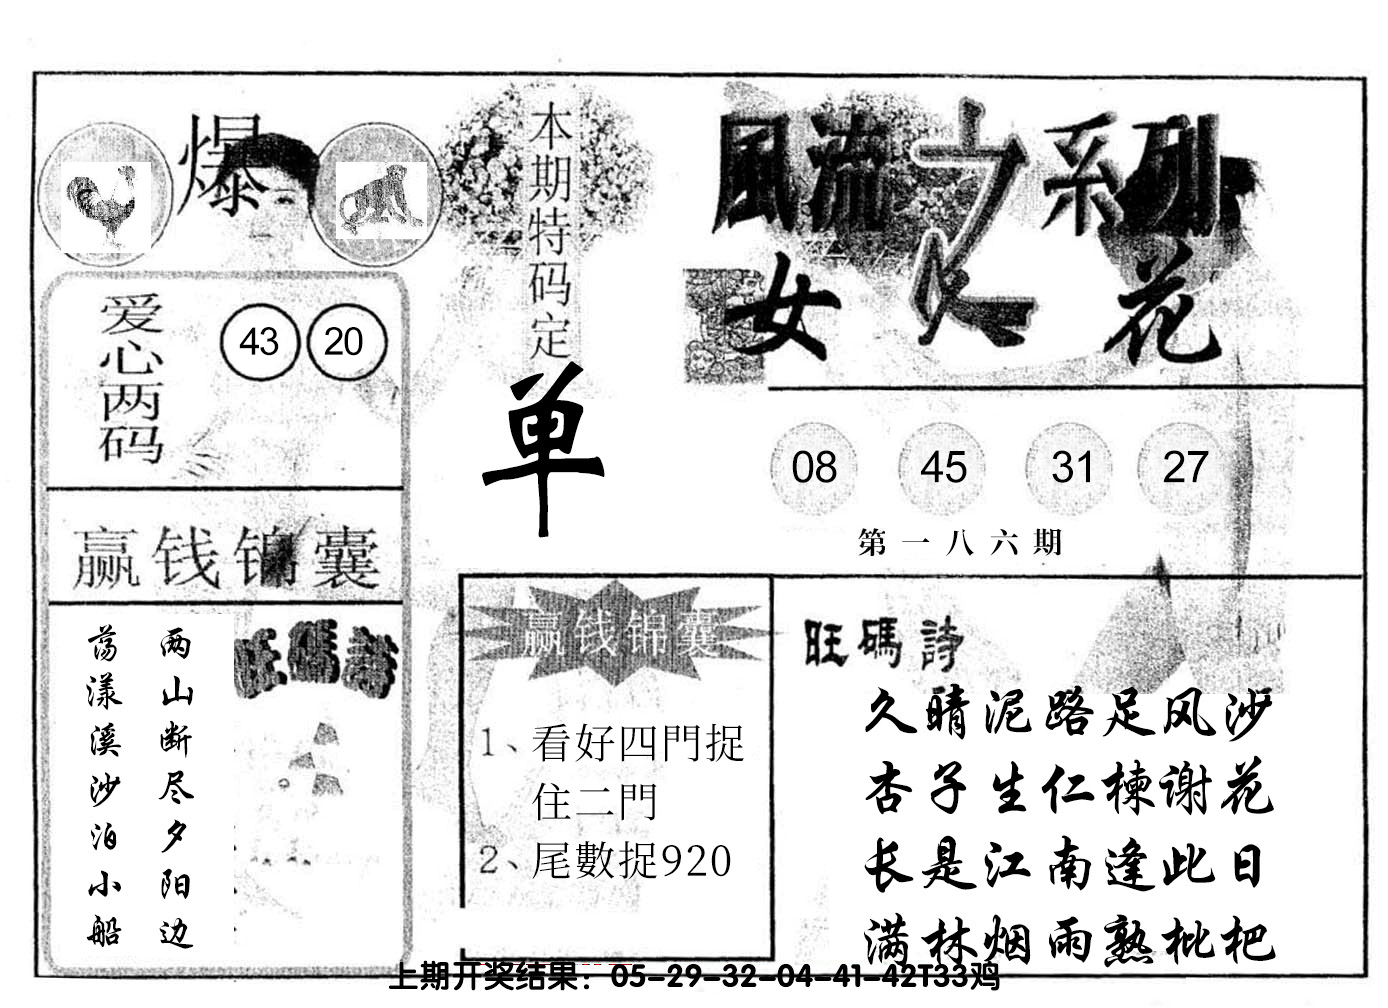 爆
本期特码定
单
風流之系列
女人花
爱心两码
43 20
08 45 31 27
第一八六期
赢钱锦囊
旺碼詩
两山断尽夕阳边
荡漾溪沙泊小船
赢钱锦囊
1、看好四門捉
住二門
2、尾數捉920
旺碼詩
久晴泥路足风沙
杏子生仁楝谢花
长是江南逢此日
满林烟雨熟枇杷
上期开奖结果：05-29-32-04-41-42T33鸡